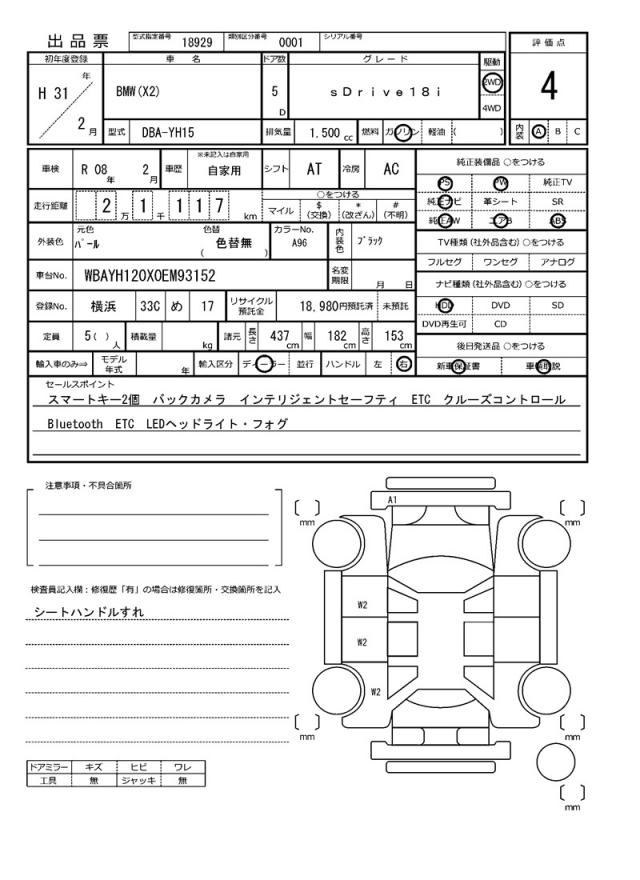 出品票 型式指定番号 18929 類別区分番号 0001 シリアル番号
評価点
4
内装 A B C
初年度登録 車名 ドア数 グレード 駆動
H 31 年 2 月 BMW(X2) 5 D sDrive18i 2WD 4WD
型式 DBA-YH15 排気量 1.500 cc 燃料 ガソリン 軽油 ( )
車検 R 08 年 2 月 車歴 ※未記入は自家用 自家用 シフト AT 冷房 AC
走行距離 2 万 1 千 1 1 7 km ○をつける マイル $ (交換) * (改ざん) # (不明)
外装色 元色 パール 色替 ( 色替無 ) カラーNo. A96 内装色 ブラック
車台No. WBAYH120X0EM93152 名変期限 月 日
登録No. 横浜 33C め 17 リサイクル預託金 18,980円預託済 未預託
定員 5( ) 人 積載量 kg 諸元 長さ 437 cm 幅 182 cm 高さ 153 cm
輸入車のみ⇒ モデル年式 年 輸入区分 ディーラー 並行 ハンドル 左 右
純正装備品 ○をつける
PS PW 純正TV
純正ナビ 革シート SR
純正AW エアB ABS
TV種類(社外品含む)○をつける
フルセグ ワンセグ アナログ
ナビ種類(社外品含む)○をつける
HDD DVD SD
DVD再生可 CD
後日発送品 ○をつける
新車保証書 車載取説
セールスポイント
スマートキー2個 バックカメラ インテリジェントセーフティ ETC クルーズコントロール
Bluetooth ETC LEDヘッドライト・フォグ
注意事項・不具合箇所
検査員記入欄：修復歴「有」の場合は修復箇所・交換箇所を記入
シートハンドルすれ
ドアミラー キズ ヒビ ワレ
工具 無 ジャッキ 無
A1
mm mm
W2
W2
W2
mm mm
mm